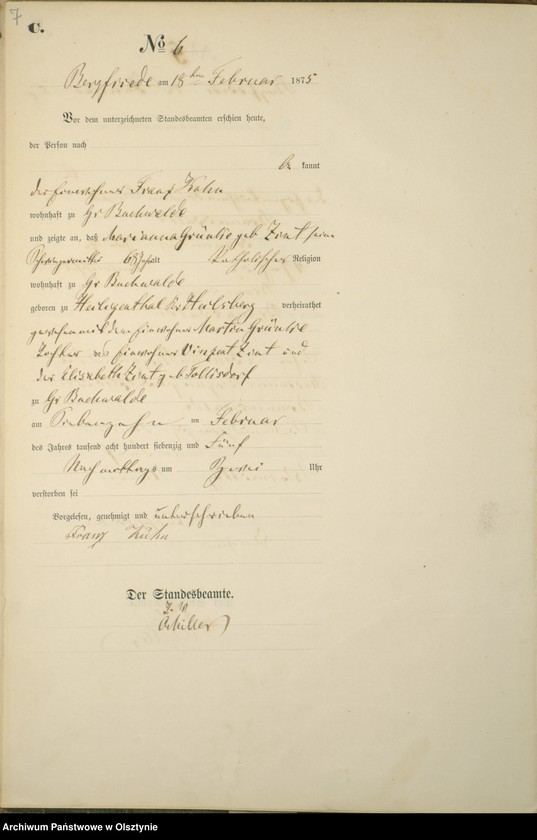 7
C.
No 6
Bergfriede am 18ten Februar 1875
Vor dem unterzeichneten Standesbeamten erschien heute,
der Person nach
be kannt
der Einwohner Franz Kuhn
wohnhaft zu Gr Buchwalde
und zeigte an, daß Marianna Grünke geb Zint seine
Schwiegermutter 68 Jahr alt Katholischer Religion
wohnhaft zu Gr Buchwalde
geboren zu Heiligenthal Kr Heilsberg verheirathet
gewesen mit dem Einwohner Martin Grünke
Tochter des Einwohner Vinzent Zint und
der Elisabeth Zint geb Tollisdorf
zu Gr Buchwalde
am Siebenzehn ten Februar
des Jahres tausend acht hundert siebenzig und Fünf
Nachmittags um Zwei Uhr
verstorben sei
Vorgelesen, genehmigt und unterschrieben
Franz Kuhn
Der Standesbeamte.
I. V
Archiwum Państwowe w Olsztynie